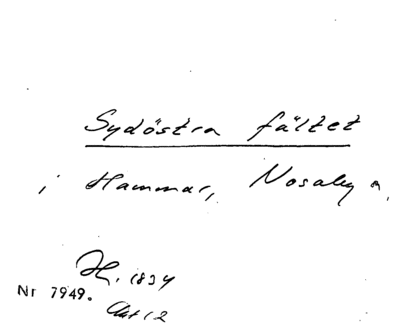 Sydöstra fältet
i Hammar, Nosaby
H. 1834
Nr 7949.